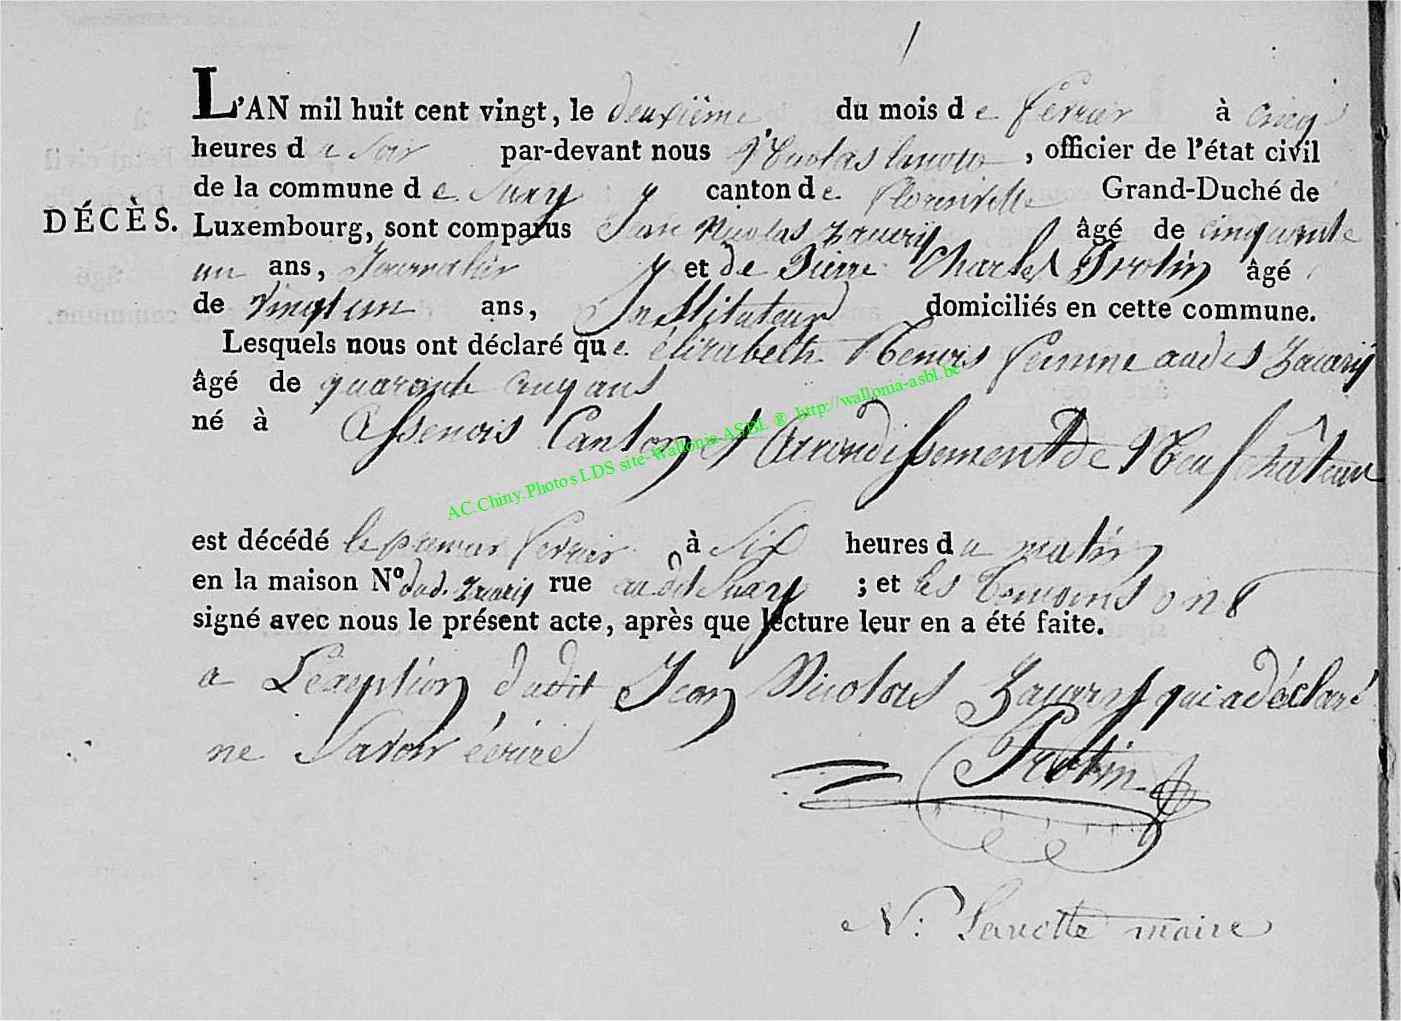 L'AN mil huit cent vingt, le deuxième du mois de fevrier à cinq
heures du soir par-devant nous Nicolas , officier de l'état civil
de la commune de Suxy canton de florenville Grand-Duché de
DÉCÈS. Luxembourg, sont comparus Jean Nicolas Zacary âgé de cinquante
un ans, Journalier et de Pierre Charles Protin âgé
de vingt un ans, Instituteur domiciliés en cette commune.
Lesquels nous ont déclaré que élizabeth femme audes Zacary
âgé de quarante cinq ans
né à assenois Canton et Arrondissement de Neufchâteau
AC.Chiny.Photos LDS site-Wallonia ASBL ® http://wallonia-asbl.be
est décédé le premier fevrier à Six heures du matin
en la maison N° dud. Zacary rue audit Suxy ; et les temoins ont
signé avec nous le présent acte, après que lecture leur en a été faite.
a L'exeption dudit Jean Nicolas Zacary qui a déclaré
ne Savoir écrire
Protin
N: maire